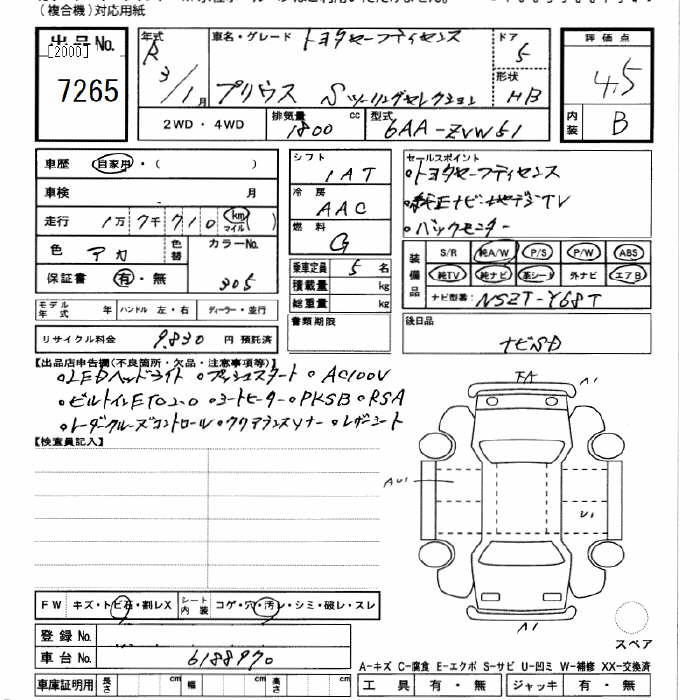 (複合機)対応用紙
出品No.
[2000]
7265
年式
R 3/1月
車名・グレード トヨタセーフティセンス
プリウス Sツーリングセレクション
ドア
5
形状
HB
評価点
4.5
内装
B
2WD・4WD
排気量 cc
1800
型式
6AA-ZVW51
車歴 自家用・( )
車検 月
走行 1万7千710 km マイル
色 アカ
色替
カラーNo.
3U5
保証書 有・無
シフト
1AT
冷房
AAC
燃料
G
乗車定員 5名
積載量 kg
総重量 kg
書類期限
セールスポイント
●トヨタセーフティセンス
●純正ナビ地デジTV
●バックセンター
装備品
S/R 純A/W P/S P/W ABS
純TV 純ナビ 革シート 外ナビ エアB
ナビ型番: NSZT-Y68T
後日品
ナビSD
モデル年式 年 ハンドル 左・右 ディーラー・並行
リサイクル料金 9,830 円 預託済
【出品店申告欄(不良箇所・欠品・注意事項等)】
●LEDヘッドライト ●プッシュスタート ●AC100V
●ビルトインETC2.0 ●シートヒーター ●PKSB ●RSA
●レーダクルーズコントロール ●クリアランスソナー ●レザーシート
【検査員記入】
A1
AU1
U1
A1
スペア
FW キズ・トビ石・割レX
シート内装 コゲ・穴・汚レ・シミ・破レ・スレ
登録No.
車台No. 6188970
車庫証明用 長さ cm 幅 cm 高さ cm
A-キズ C-腐食 E-エクボ S-サビ U-凹ミ W-補修 XX-交換済
工具 有・無 ジャッキ 有・無